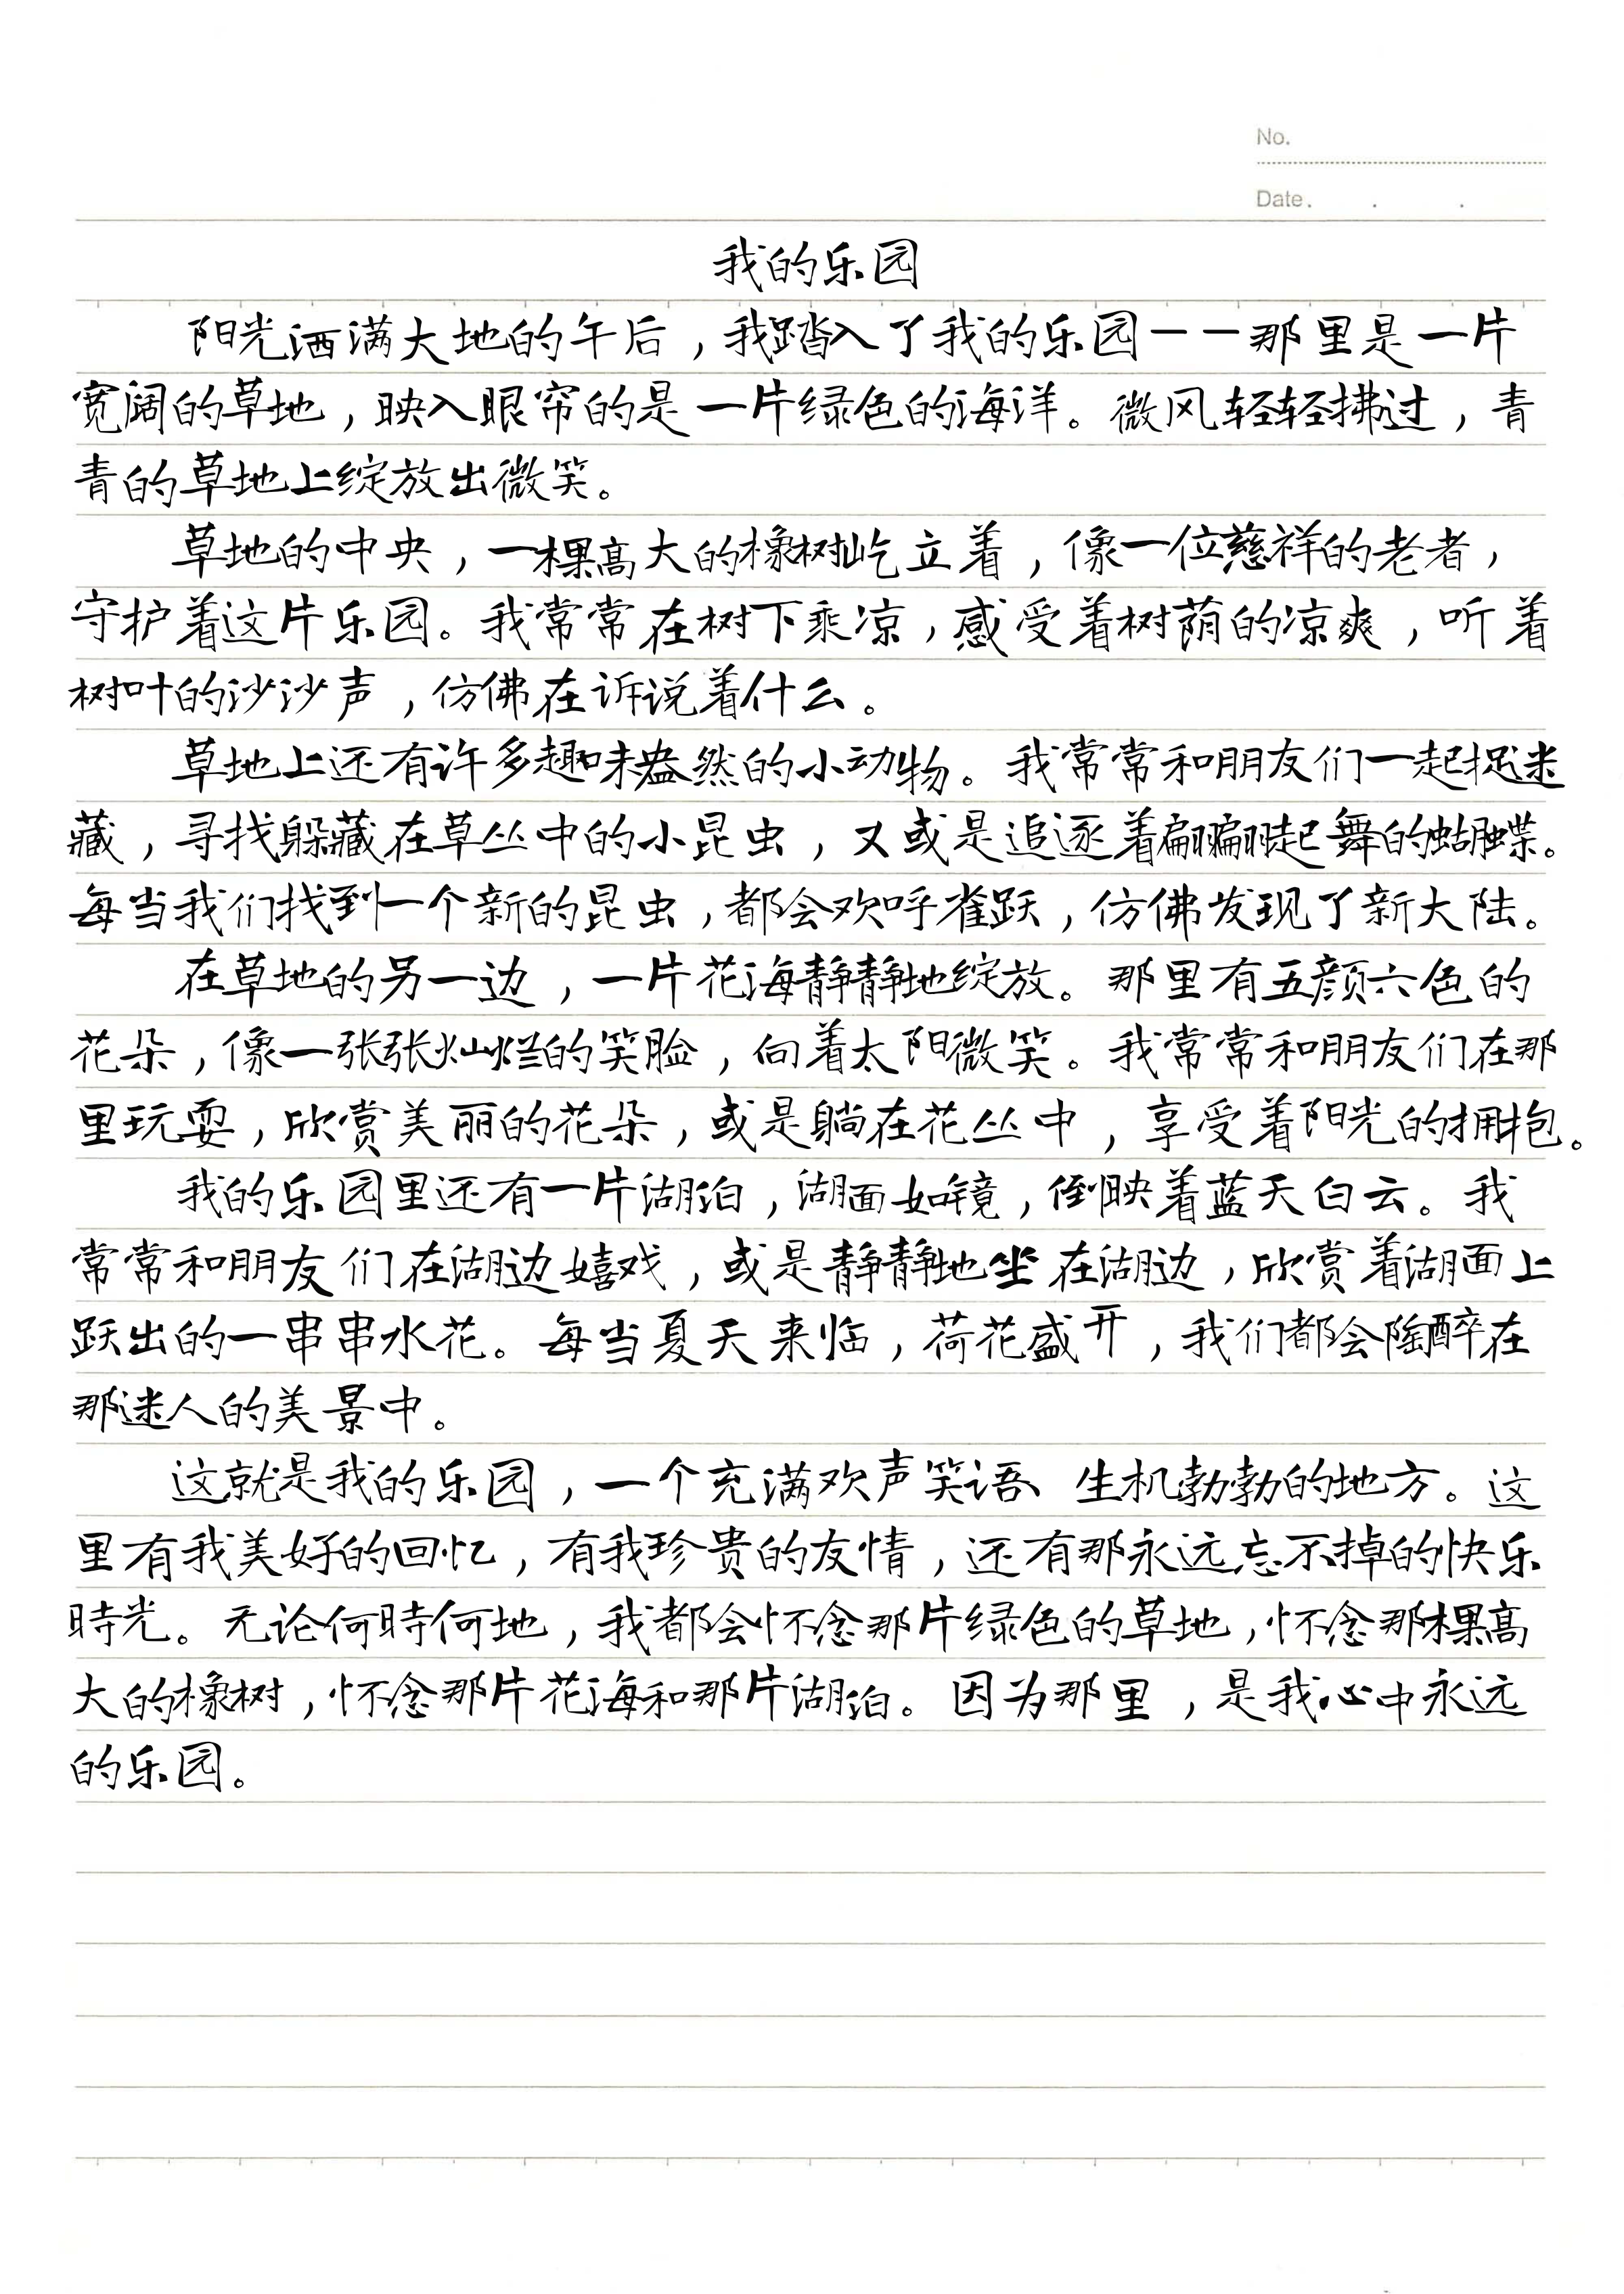 No.
Date. . .
我的乐园
阳光洒满大地的午后，我踏入了我的乐园——那里是一片
宽阔的草地，映入眼帘的是一片绿色的海洋。微风轻轻拂过，青
青的草地上绽放出微笑。
草地的中央，一棵高大的橡树屹立着，像一位慈祥的老者，
守护着这片乐园。我常常在树下乘凉，感受着树荫的凉爽，听着
树叶的沙沙声，仿佛在诉说着什么。
草地上还有许多趣味盎然的小动物。我常常和朋友们一起捉迷
藏，寻找躲藏在草丛中的小昆虫，又或是追逐着翩翩起舞的蝴蝶。
每当我们找到一个新的昆虫，都会欢呼雀跃，仿佛发现了新大陆。
在草地的另一边，一片花海静静地绽放。那里有五颜六色的
花朵，像一张张灿烂的笑脸，向着太阳微笑。我常常和朋友们在那
里玩耍，欣赏美丽的花朵，或是躺在花丛中，享受着阳光的拥抱。
我的乐园里还有一片湖泊，湖面如镜，倒映着蓝天白云。我
常常和朋友们在湖边嬉戏，或是静静地坐在湖边，欣赏着湖面上
跃出的一串串水花。每当夏天来临，荷花盛开，我们都会陶醉在
那迷人的美景中。
这就是我的乐园，一个充满欢声笑语、生机勃勃的地方。这
里有我美好的回忆，有我珍贵的友情，还有那永远忘不掉的快乐
時光。无论何時何地，我都会怀念那片绿色的草地，怀念那棵高
大的橡树，怀念那片花海和那片湖泊。因为那里，是我心中永远
的乐园。